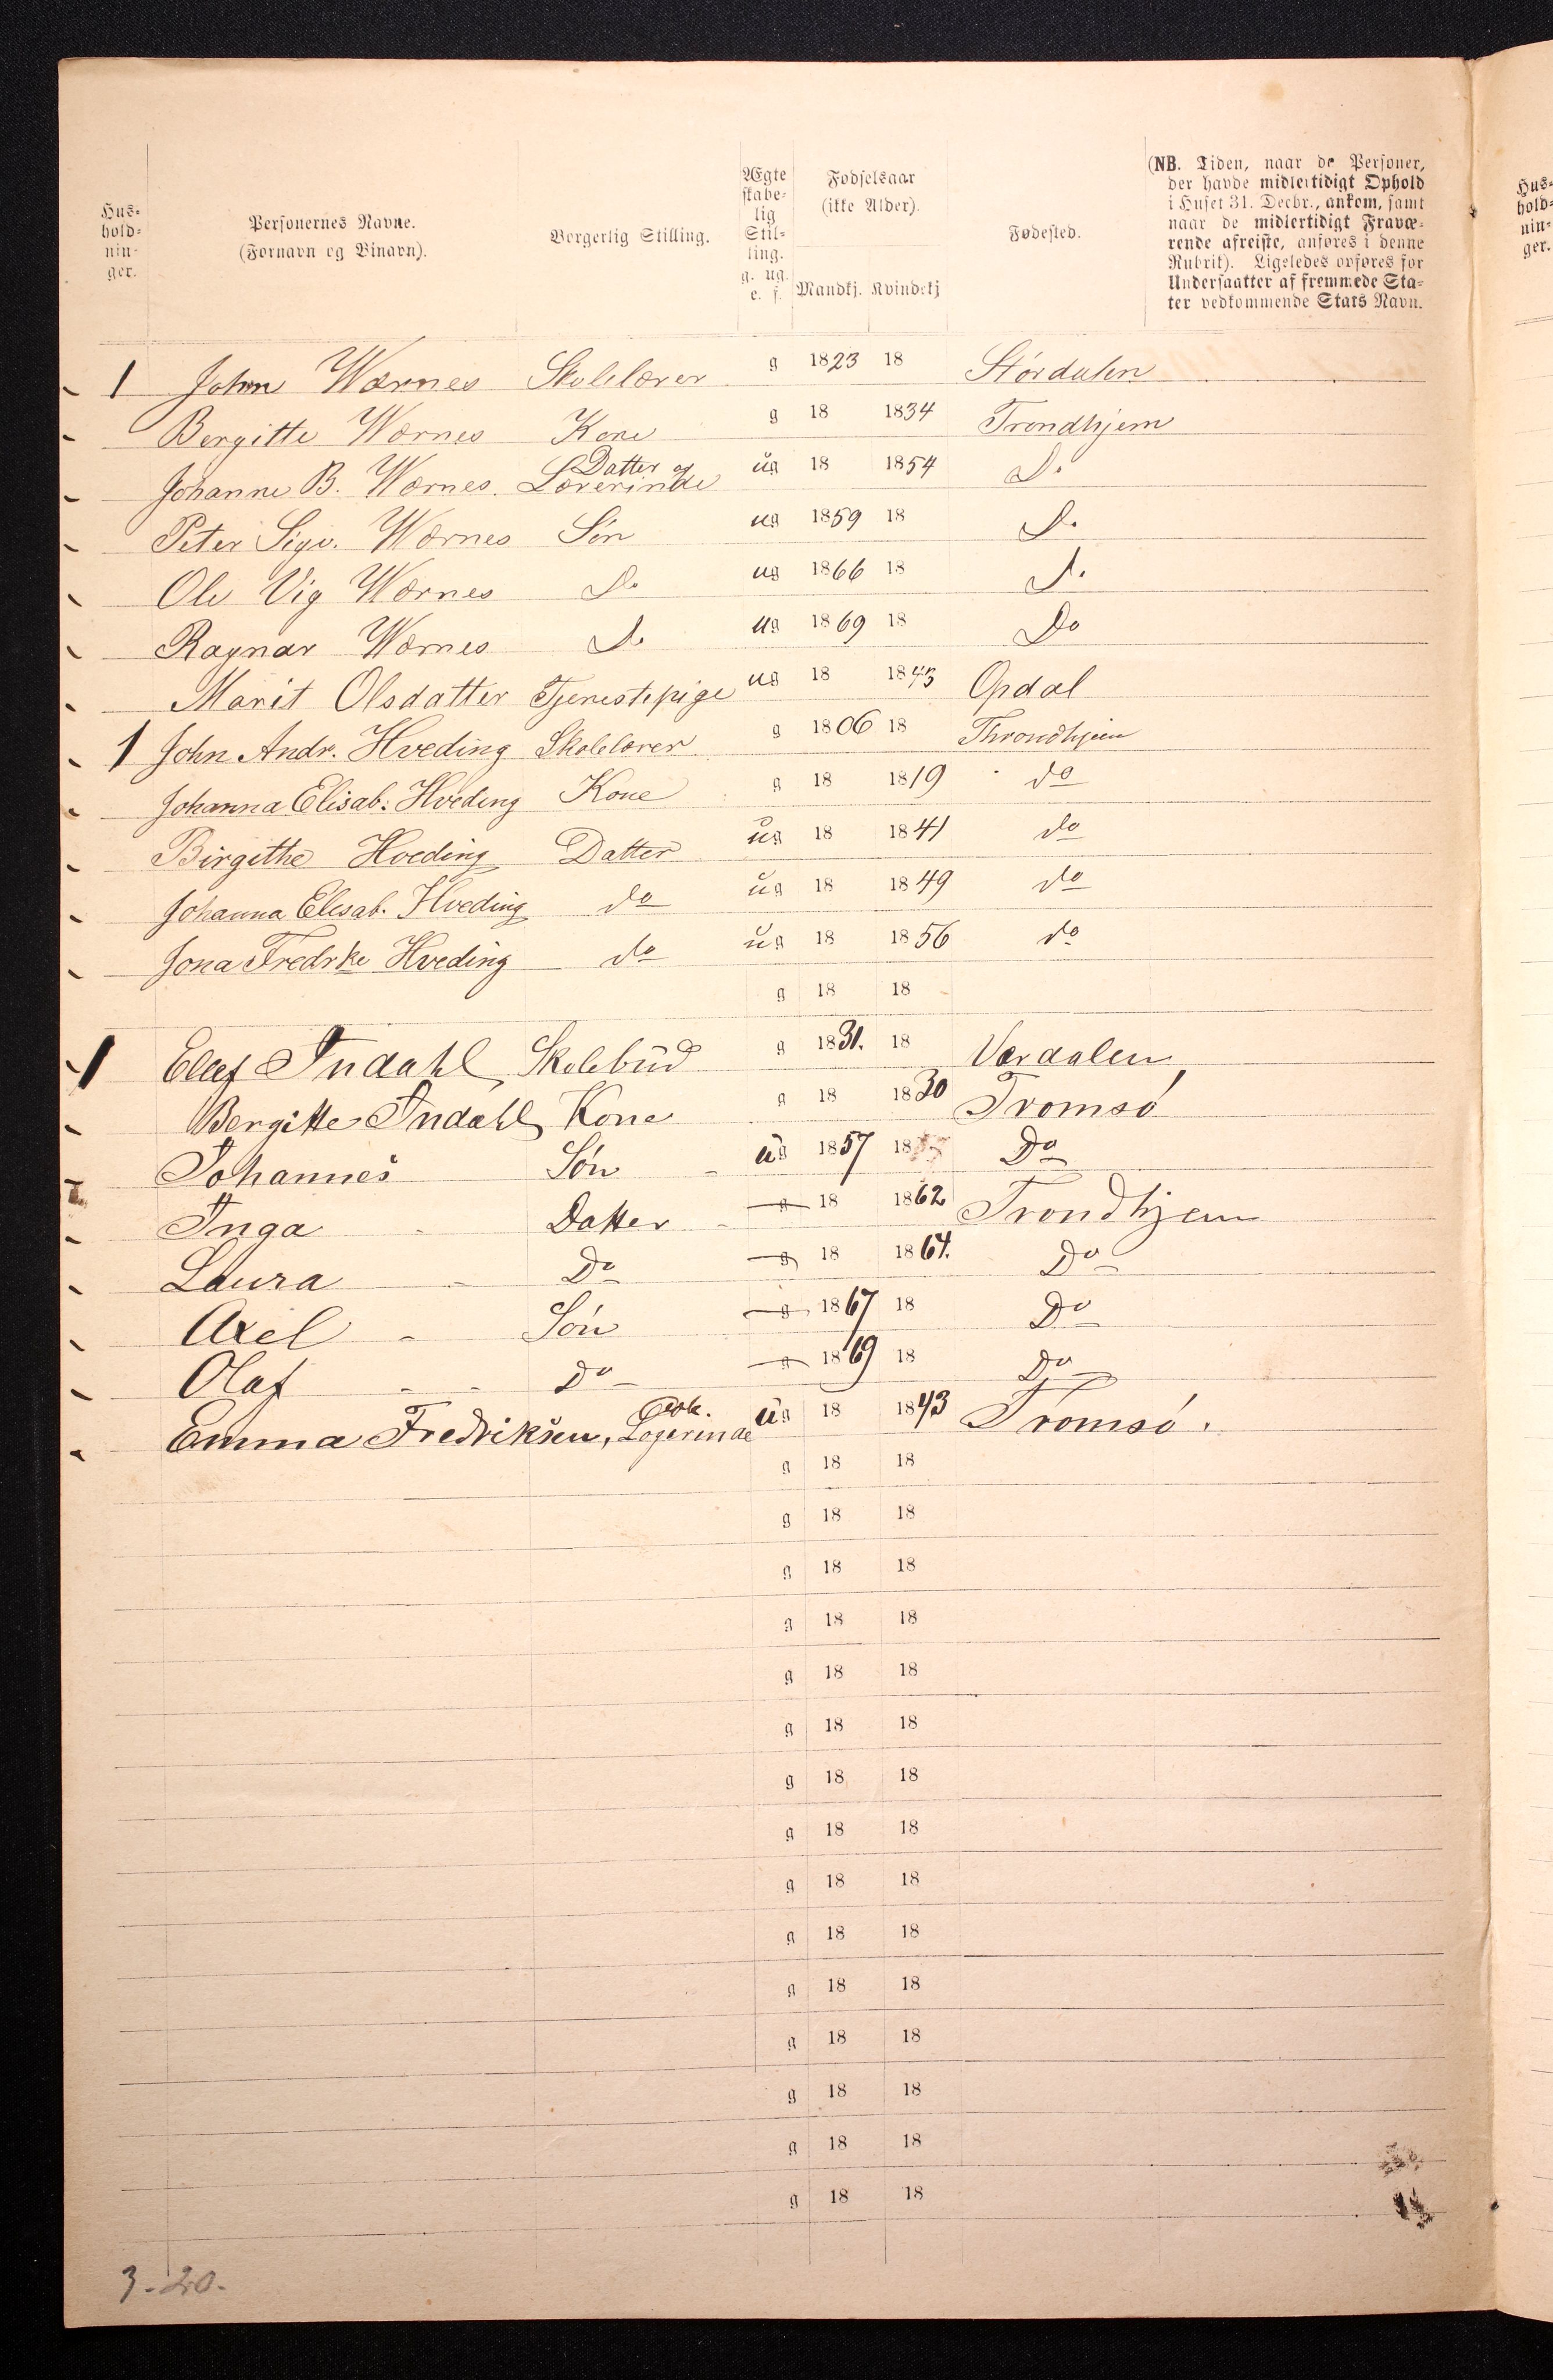 Hus-
hold-
nin-
ger.
Personernes Navne.
(Fornavn og Binavn).
Borgerlig Stilling.
Ægte
skabe-
lig
Stil-
ling.
g. ug.
e. f.
Fødselsaar
(ikke Alder).
Mandkj. Kvindekj
Fødested.
(NB. Tiden, naar de Personer,
der havde midlertidigt Ophold
i Huset 31. Decbr., ankom, samt
naar de midlertidigt Fravæ-
rende afreiste, anføres i denne
Rubrik). Ligeledes opføres for
Undersaatter af fremmede Sta-
ter vedkommende Stats Navn.
Hus-
hold-
nin-
ger.
1 John Wærnes Skolelærer g 1823 18 Størdalen
Bergitte Wærnes Kone g 18 1834 Trondhjem
Datter og
Johanne B. Wærnes. Lærerinde ug 18 1854 Do
Peter Sigv. Wærnes Søn ug 1859 18 Do
Ole Vig Wærnes Do ug 1866 18 Do
Ragnar Wærnes Do ug 1869 18 Do
Marit Olsdatter Tjenestepige ug 18 1843 Opdal
1 John Andr. Hveding Skolelærer g 1806 18 Throndhjem
Johanna Elisab. Hveding Kone g 18 1819 do
Birgithe Hveding Datter ug 18 1841 do
Johanna Elisab. Hveding do ug 18 1849 do
Jona Fredrke Hveding do ug 18 1856 do
g 18 18
1 Ellef Indahl, Skolebud g 1831. 18 Værdalen
Bergitte Indahl, Kone g 18 1830 Tromsø
Johannes Søn ug 1857 18 Do
Inga - Datter - g 18 1862 Trondhjem
Laura - Do g 18 1864. Do
Axel - Søn g 1867 18 Do
Olaf - - Do g 1869 18 Do
Emma Fredriksen, Logerinde ug 18 1843 Tromsø.
g 18 18
g 18 18
g 18 18
g 18 18
g 18 18
g 18 18
g 18 18
g 18 18
g 18 18
g 18 18
g 18 18
g 18 18
g 18 18
g 18 18
g 18 18
3-20.